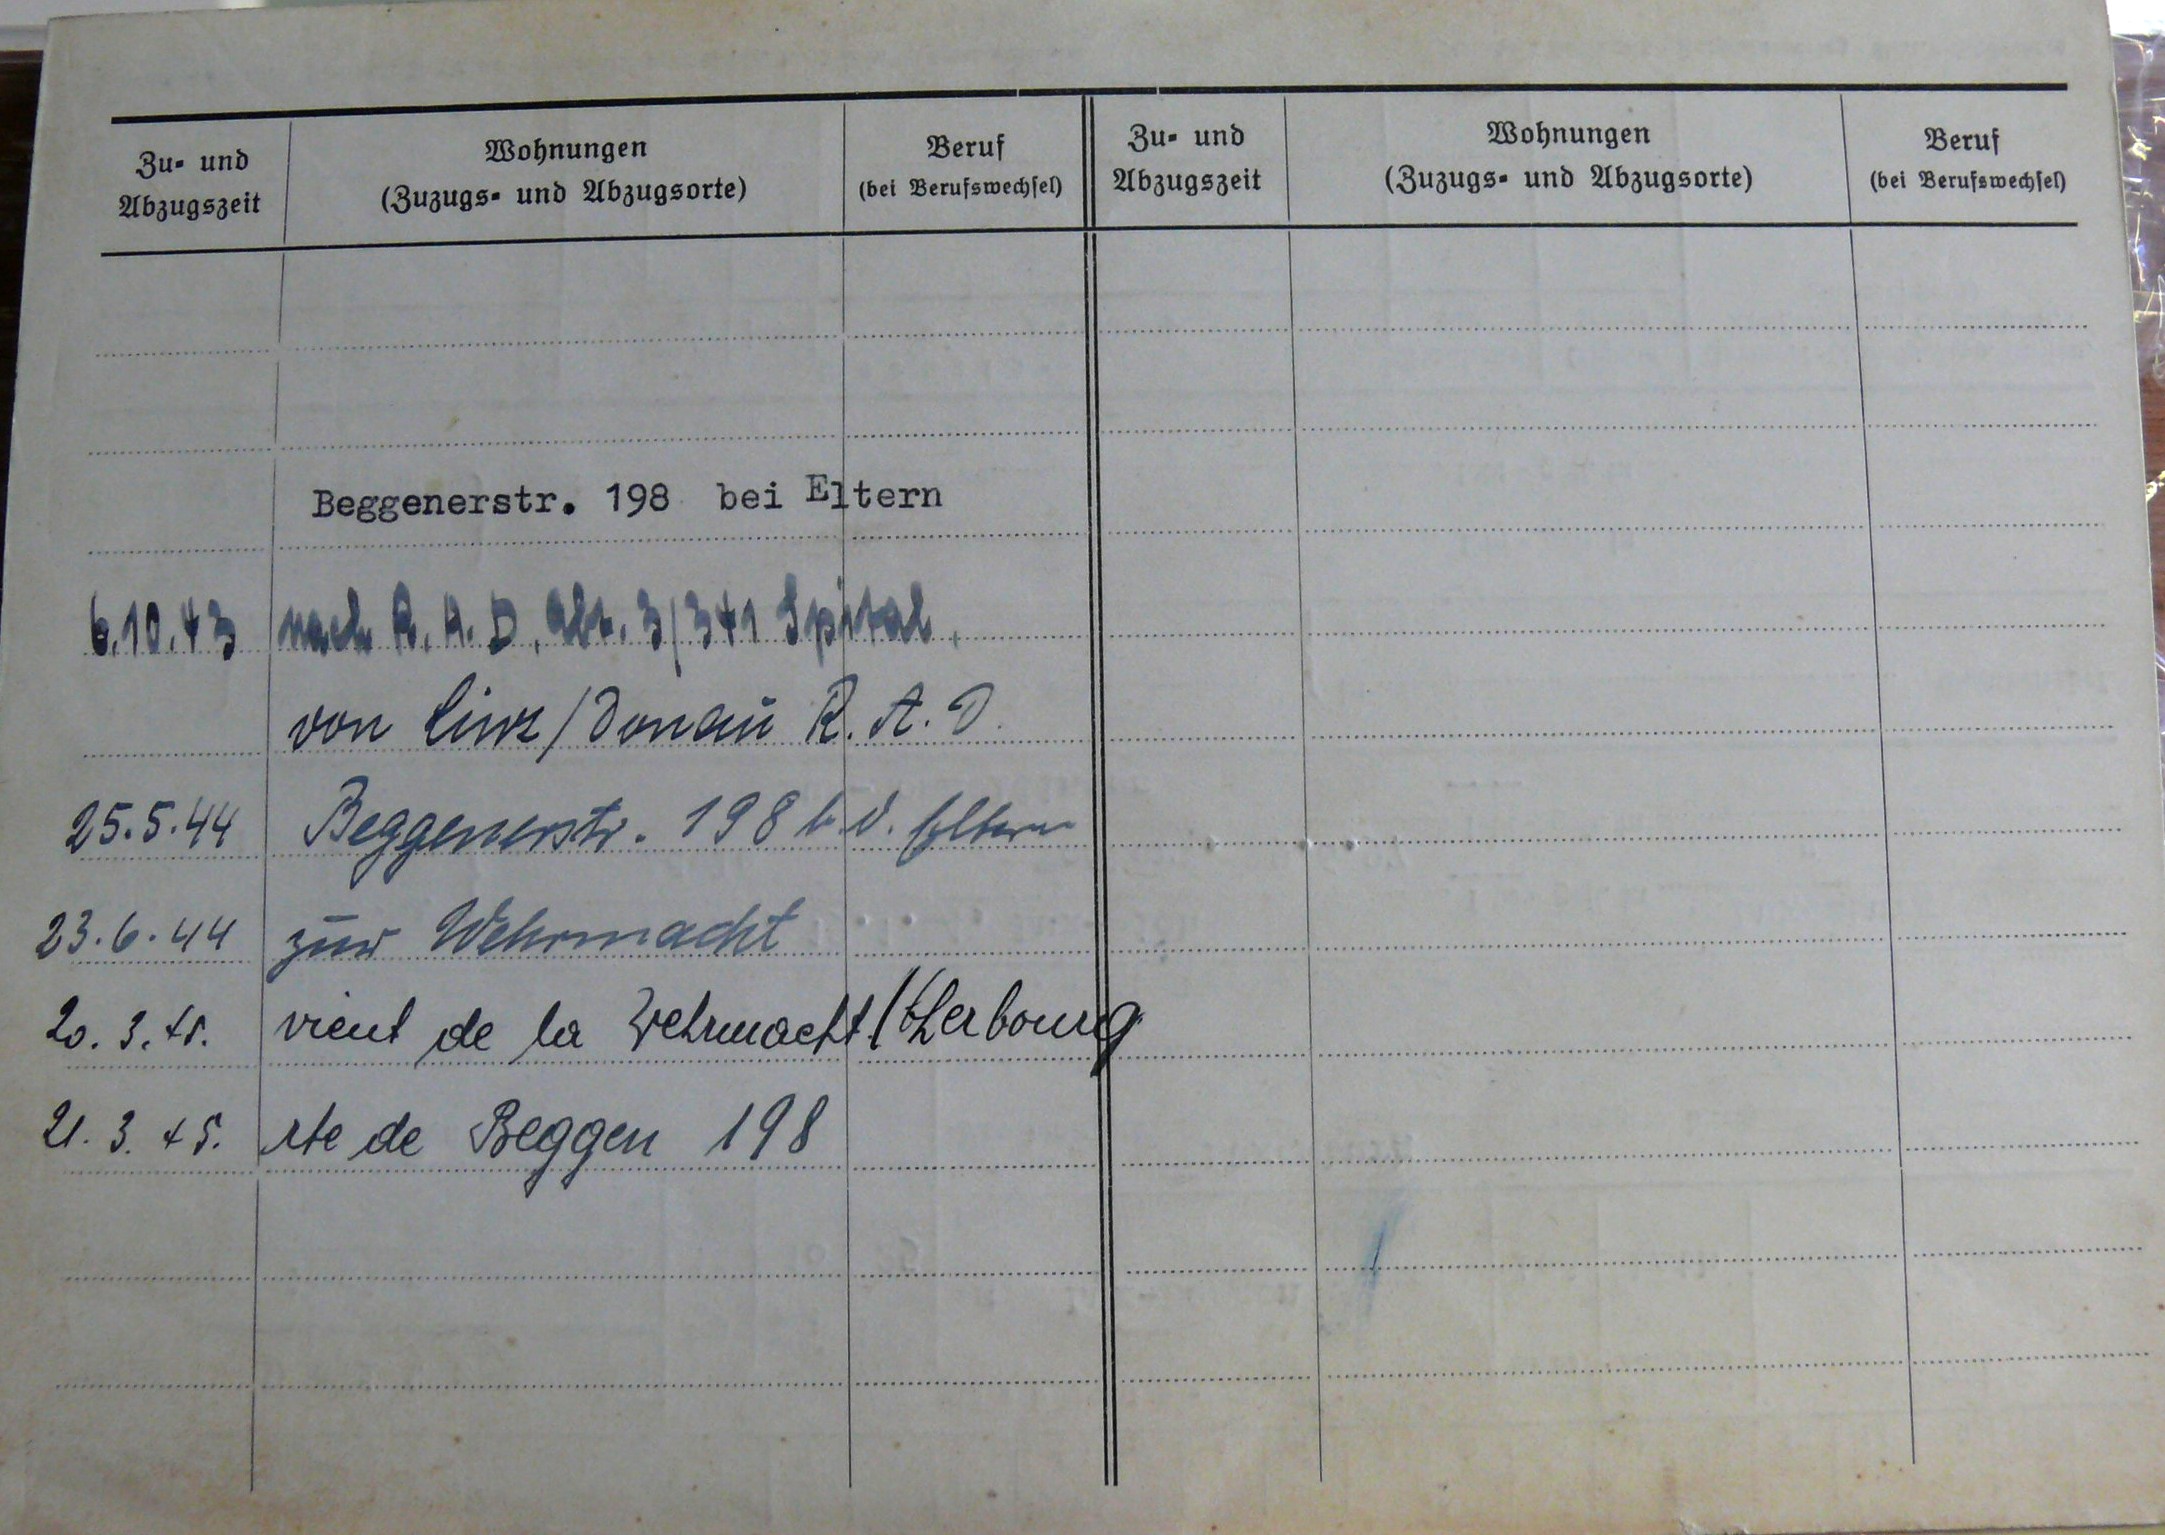 Zu- und Abzugszeit
Wohnungen
(Zuzugs- und Abzugsorte)
Beruf
(bei Berufswechsel)
Zu- und Abzugszeit
Wohnungen
(Zuzugs- und Abzugsorte)
Beruf
(bei Berufswechsel)
Beggenerstr. 198 bei Eltern
6.10.43 nach R.A.D. Abt. 3/341 Spital,
von Linz/Donau R.A.D.
25.5.44 Beggenerstr. 198 b. d. Eltern
23.6.44 zur Wehrmacht
20.3.45. vient de la Wehrmacht/Cherbourg
21.3.45. rte de Beggen 198